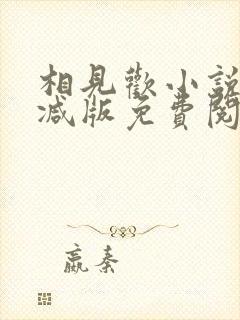 相見歡小說
減版免費閱
嬴秦